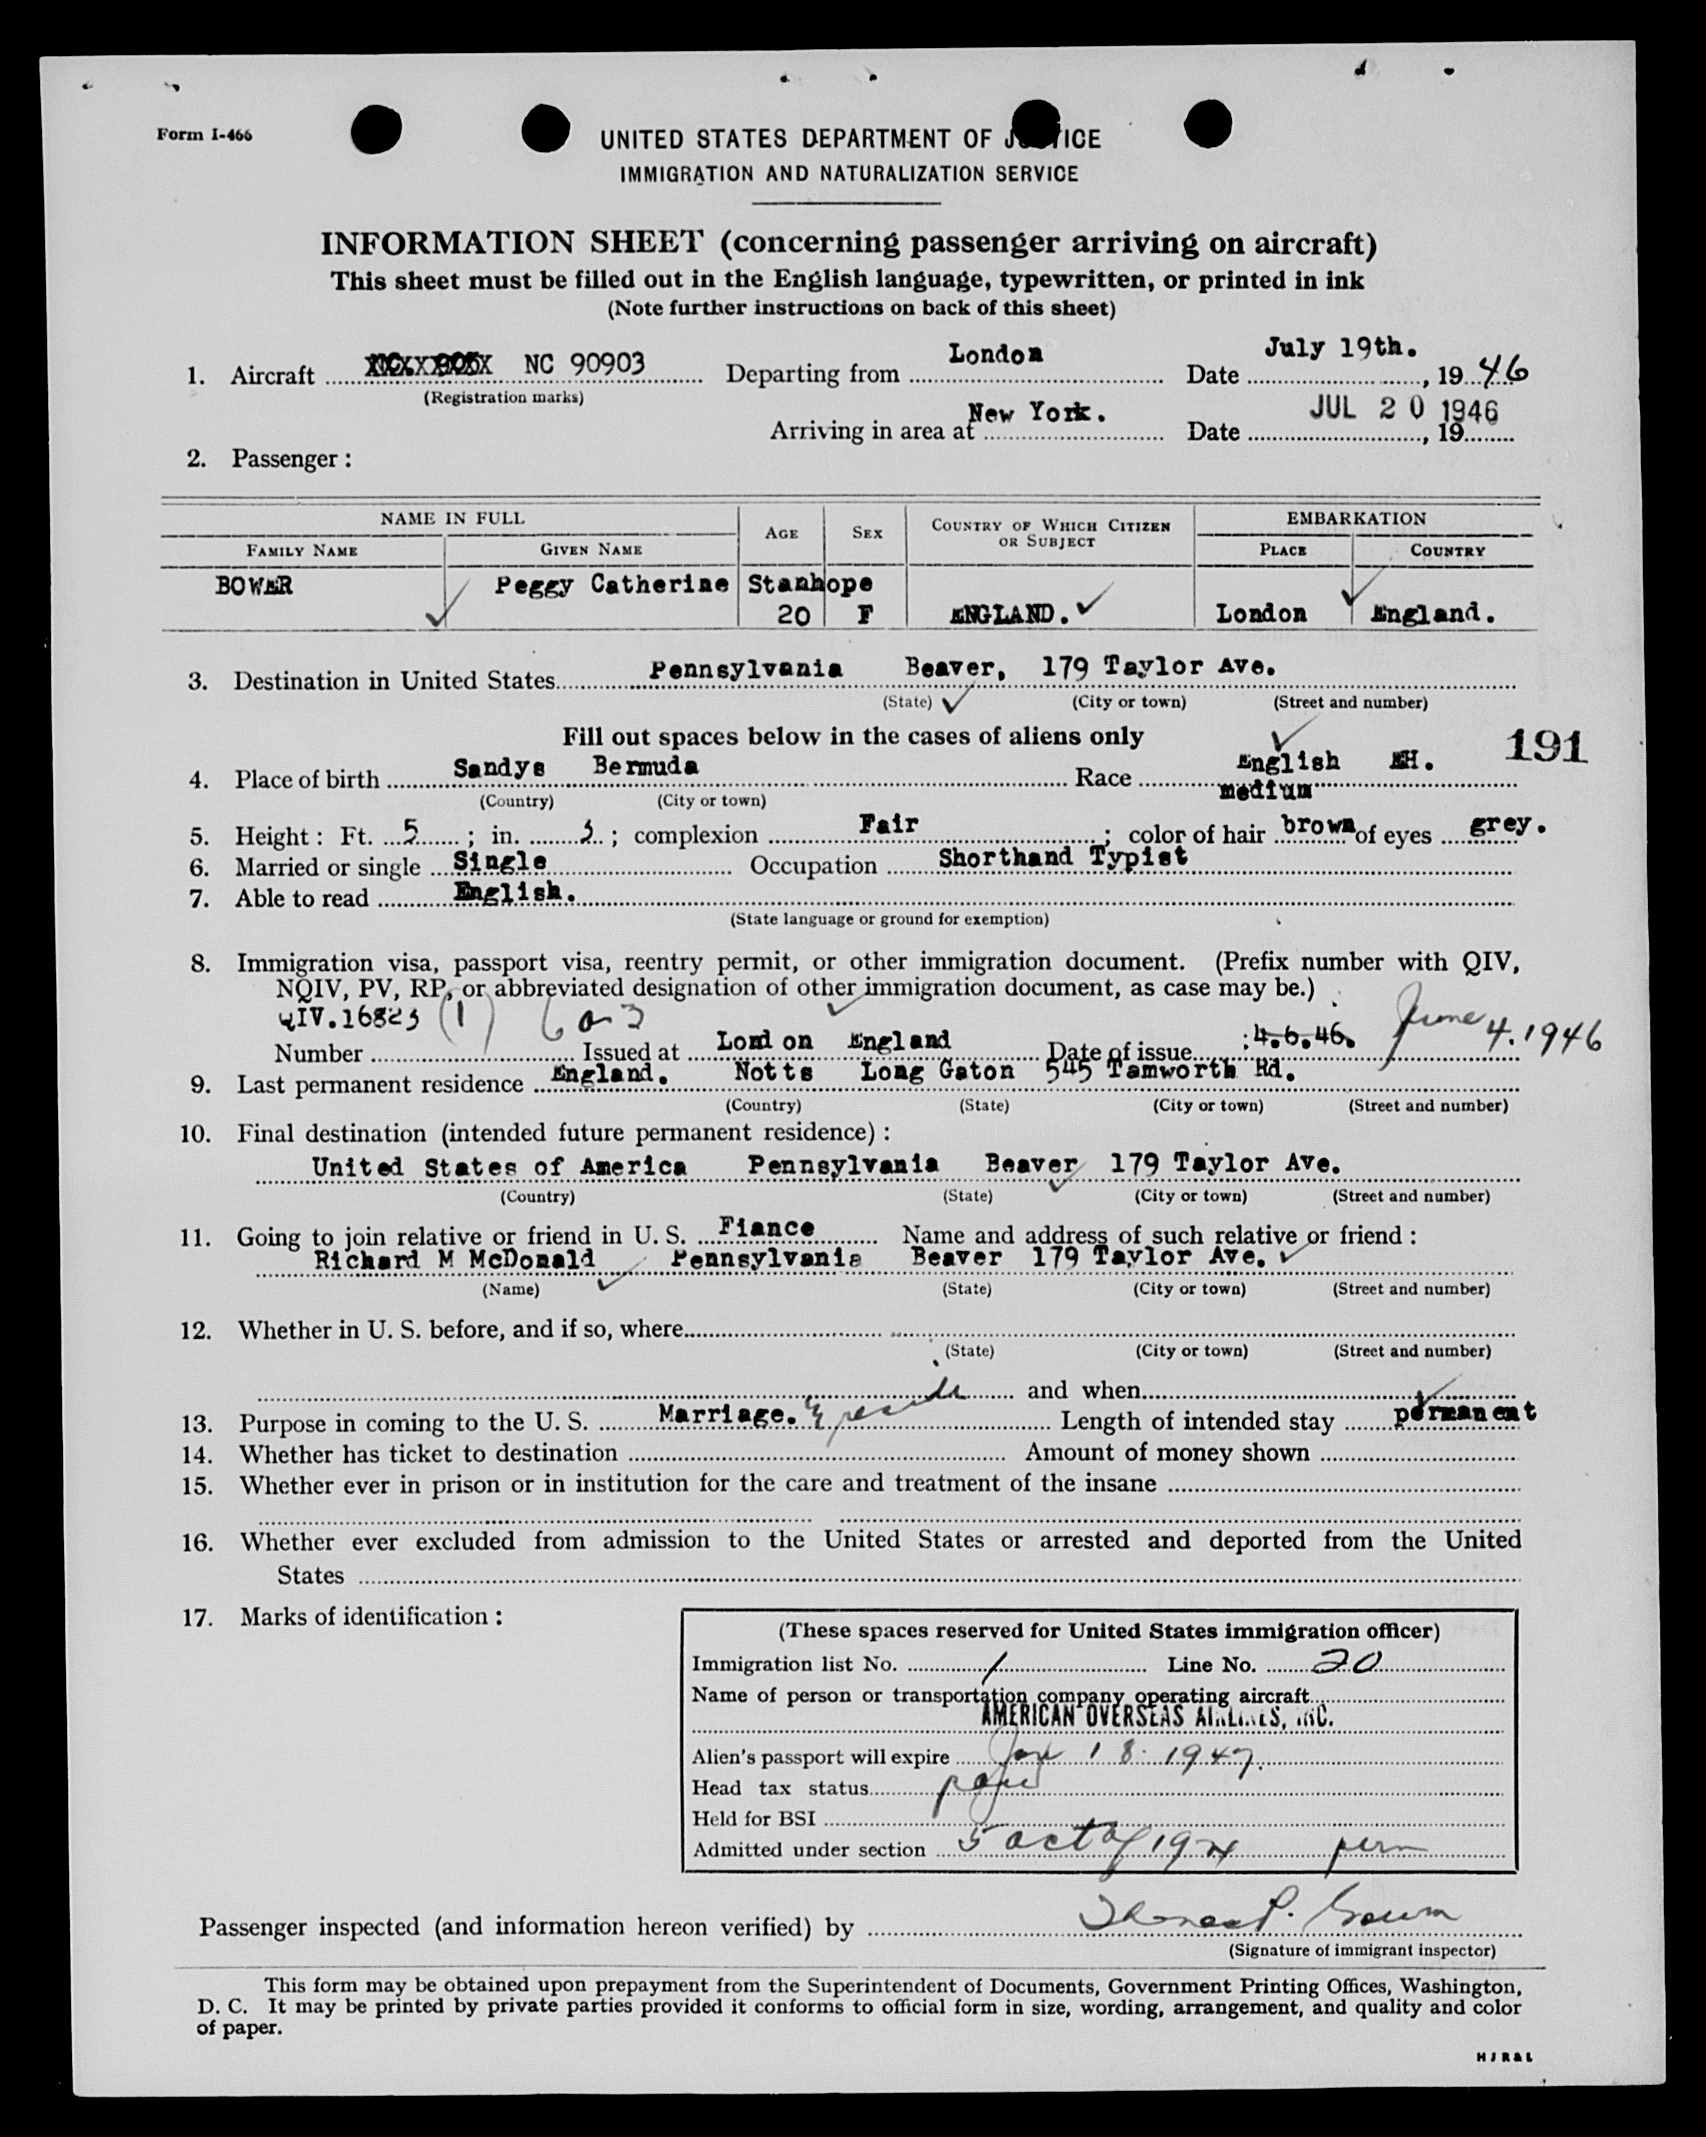 Form I-466
UNITED STATES DEPARTMENT OF JUSTICE
IMMIGRATION AND NATURALIZATION SERVICE
INFORMATION SHEET (concerning passenger arriving on aircraft)
This sheet must be filled out in the English language, typewritten, or printed in ink
(Note further instructions on back of this sheet)
1. Aircraft NC 90903 Departing from London Date July 19th., 19 46
(Registration marks)
Arriving in area at New York. Date JUL 20 1946, 19
2. Passenger:
NAME IN FULL AGE SEX COUNTRY OF WHICH CITIZEN OR SUBJECT EMBARKATION
FAMILY NAME GIVEN NAME PLACE COUNTRY
BOWER Peggy Catherine Stanhope
20 F ENGLAND. London England.
3. Destination in United States Pennsylvania Beaver, 179 Taylor Ave.
(State) (City or town) (Street and number)
Fill out spaces below in the cases of aliens only
191
4. Place of birth Sandys Bermuda Race English EH.
(Country) (City or town)
medium
5. Height: Ft. 5; in. 3; complexion Fair; color of hair brown of eyes grey.
6. Married or single Single Occupation Shorthand Typist
7. Able to read English.
(State language or ground for exemption)
8. Immigration visa, passport visa, reentry permit, or other immigration document. (Prefix number with QIV,
NQIV, PV, RP, or abbreviated designation of other immigration document, as case may be.)
QIV.16823 (1) 6 a 3
Number Issued at London England Date of issue :4.6.46. June 4. 1946
9. Last permanent residence England. Notts Long Gaton 545 Tamworth Rd.
(Country) (State) (City or town) (Street and number)
10. Final destination (intended future permanent residence):
United States of America Pennsylvania Beaver 179 Taylor Ave.
(Country) (State) (City or town) (Street and number)
11. Going to join relative or friend in U. S. Fiance Name and address of such relative or friend:
Richard M McDonald Pennsylvania Beaver 179 Taylor Ave.
(Name) (State) (City or town) (Street and number)
12. Whether in U. S. before, and if so, where
(State) (City or town) (Street and number)
and when
13. Purpose in coming to the U. S. Marriage. & reside Length of intended stay permanent
14. Whether has ticket to destination Amount of money shown
15. Whether ever in prison or in institution for the care and treatment of the insane
16. Whether ever excluded from admission to the United States or arrested and deported from the United
States
17. Marks of identification:
(These spaces reserved for United States immigration officer)
Immigration list No. 1 Line No. 20
Name of person or transportation company operating aircraft
AMERICAN OVERSEAS AIRLINES, INC.
Alien's passport will expire Jan 18 1947.
Head tax status paid
Held for BSI
Admitted under section 5 act of 1924 perm
Passenger inspected (and information hereon verified) by
(Signature of immigrant inspector)
This form may be obtained upon prepayment from the Superintendent of Documents, Government Printing Offices, Washington,
D. C. It may be printed by private parties provided it conforms to official form in size, wording, arrangement, and quality and color
of paper.
HJR&L